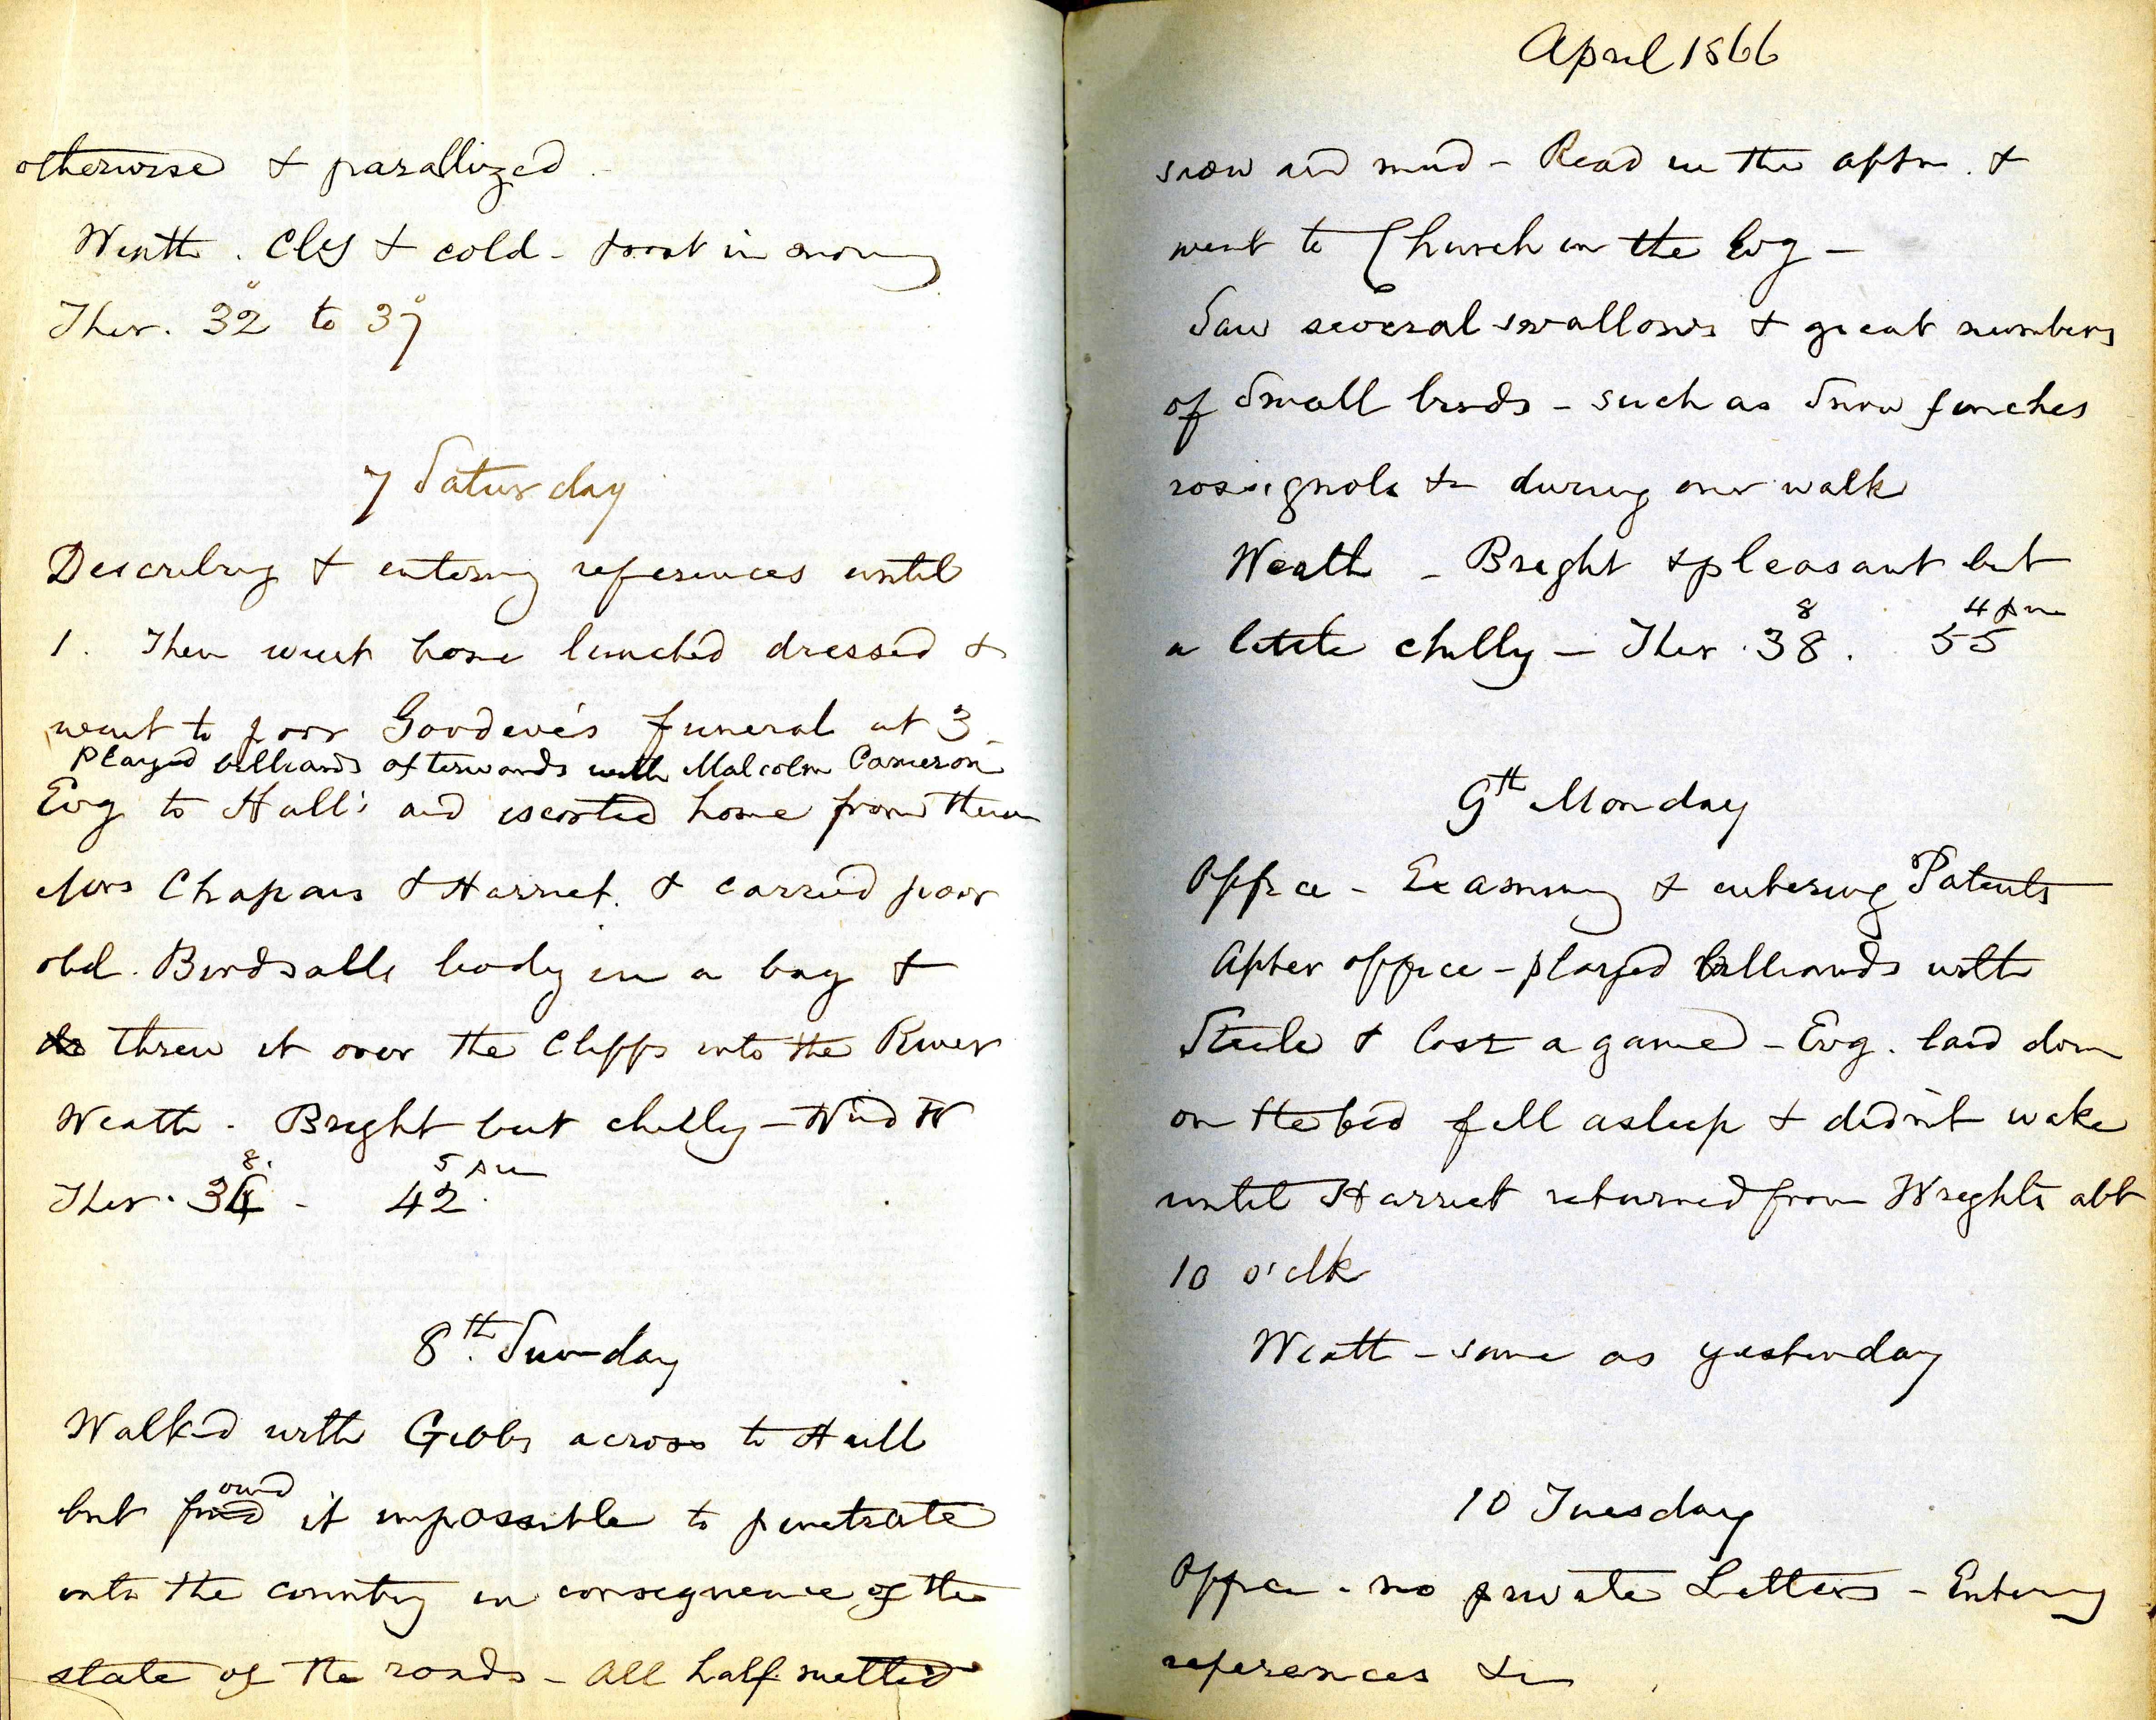 otherwise & parallized
Weath. Cldy & cold - frost in morning
Ther. 32° to 37°
7 Saturday
Describing & entering references until
1. Then went home lunched dressed &
went to poor Goodeve's funeral at 3
Played billiards afterwards with Malcolm Cameron
Evg to Hall's and escorted home from there
Mrs Chapais & Harriet. & carried poor
old. Birdsalls body in a bag &
threw it over the Cliffs into the River
Weath. Bright but chilly - Wind W
Ther. 34 8. - 42 5 pm
8th. Sunday
Walked with Gibbs across to Hull
but found it impossible to penetrate
into the country in consequence of the
state of the roads - All half melted
April 1866
snow and mud - Read in the aftn. &
went to Church in the Evg -
Saw several swallows & great numbers
of Small birds - such as Snow finches
rossignols &c during our walk
Weath - Bright & pleasant but
a little chilly - Ther. 38 8. 55 4 pm
9th Monday
Office - Examining & entering Patents
After office - played billiards with
Steele & lost a game - Evg. laid down
on the bed fell asleep & didn't wake
until Harriet returned from Wrights abt
10 o'clk
Weath - same as yesterday
10 Tuesday
Office - no private Letters - Entering
references &c